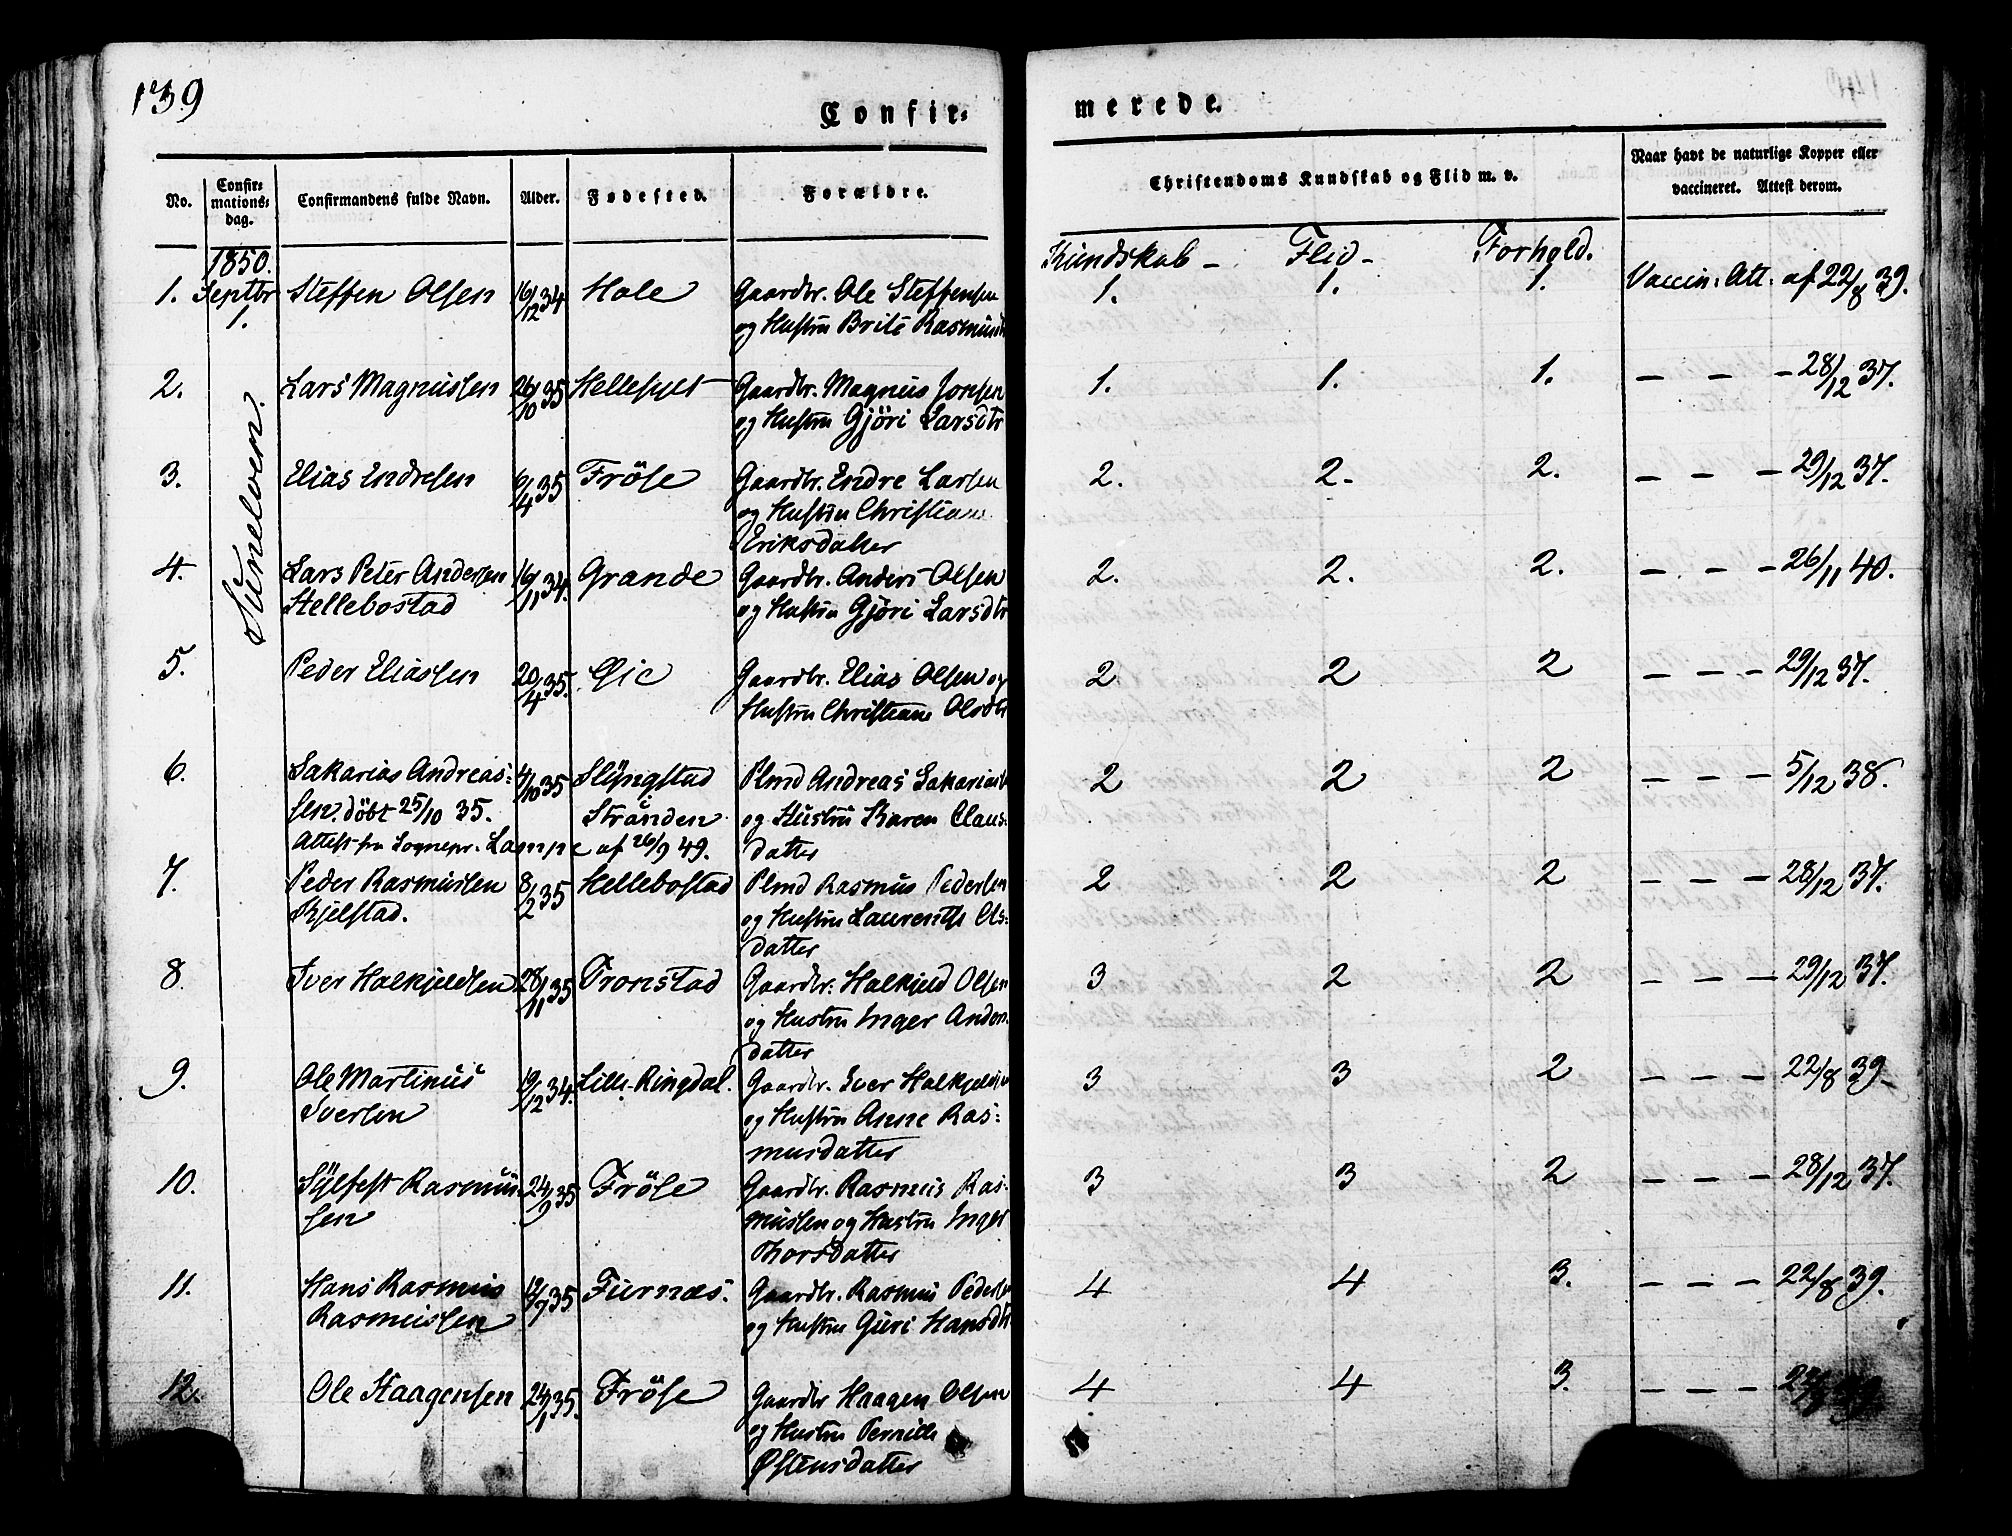 139
Confir- merede.
No. Confirmations-dag. Confirmandens fulde Navn. Alder. Fødested. Forældre. Christendoms Kundskab og Flid m. v. Naar havt de naturlige Kopper eller vaccineret. Attest derom.
1850. Kundskab - Flid - Forhold.
1. Septbr 1. Steffen Olsen 16/12 34 Hole Gaardbr. Ole Steffensen 1. 1. 1. Vaccin. Att. af 22/8 39.
og Hustru Brite Rasmusdt
Sunelven.
2. Lars Magnussen 26/10 35 Hellesylt Gaardbr. Magnus Jonsen 1. 1. 1. — — — 28/12 37.
og Hustru Gjöri Larsdtr
3. Elias Endresen 35 Fröse Gaardbr. Endre Larsen 2. 2. 2. — — — 29/12 37.
og Hustru Christiane
Eriksdatter
4. Lars Peter Andersen 16/11 34. Grande Gaardbr. Anders Olsen 2. 2. 2. — — — 26/11 40.
Hellebostad og Hustru Gjöri Larsdtr
5. Peder Eliassen 20/4 35. Gaardbr. Elias Olsen og 2 2 2 — — — 29/12 37.
Hustru Christiane Olsdtr
6. Sakarias Andreas= 4/10 35 Slÿngstad Plmd Andreas Sakarias 2 2 2 — — — 5/12 38.
sen. döbt 25/10 35. Stranden og Hustru Karen Claus-
Attest fra Sognepr. Lampe af 26/9 49. datter
7. Peder Rasmussen 8/2 35 Hellebostad Plmd Rasmus Pedersen 2 2 2 — — — 28/12 37.
Kjelstad. og Hustru Laurentse Ols-
datter
8. Iver Halkjeldsen 28/11 35 Tronstad Gaardbr. Halkjeld Olsen 3 2 2 — — — 29/12 37.
og Hustru Inger Anders
datter
9. Ole Martinus 19/12 34. Lille Ringdal. Gaardbr. Iver Halkjeldsen 3 3 2 — — — 22/8 39.
Iversen og Hustru Anne Ras=
musdatter
10. Sÿlfest Rasmus- 24/9 35 Fröse Gaardbr. Rasmus Ras- 3 3 2 — — — 28/12 37.
sen mussen og Hustru Inger
Thorsdatter
11. Hans Rasmus 35 Furnæs. Gaardbr. Rasmus Pedersen 4 4 3. — — — 22/8 39.
Rasmussen og Hustru Guri Hansdtr
12. Ole Haagensen 24/1 35. Fröse Gaardbr Haagen Olsen 4 4 3. — — —
og Hustru Pernille
Østensdatter